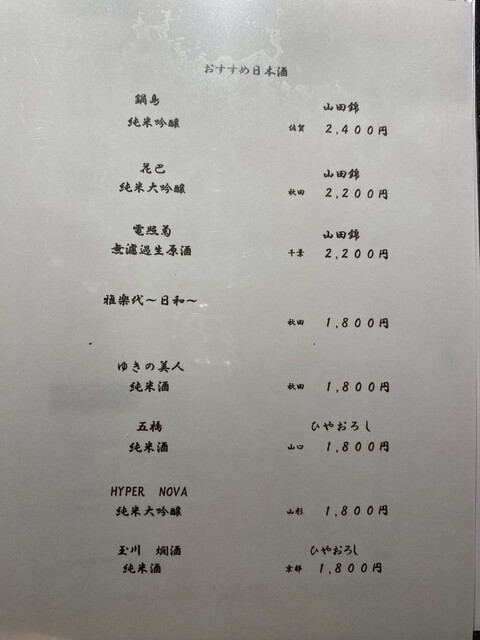 おすすめ日本酒
鍋島 山田錦
純米吟醸 佐賀 2,400円
花巴 山田錦
純米大吟醸 秋田 2,200円
電照菊 山田錦
無濾過生原酒 千葉 2,200円
雅楽代～日和～
秋田 1,800円
ゆきの美人
純米酒 秋田 1,800円
五橋 ひやおろし
純米酒 山口 1,800円
HYPER NOVA
純米大吟醸 山形 1,800円
玉川 燗酒 ひやおろし
純米酒 京都 1,800円